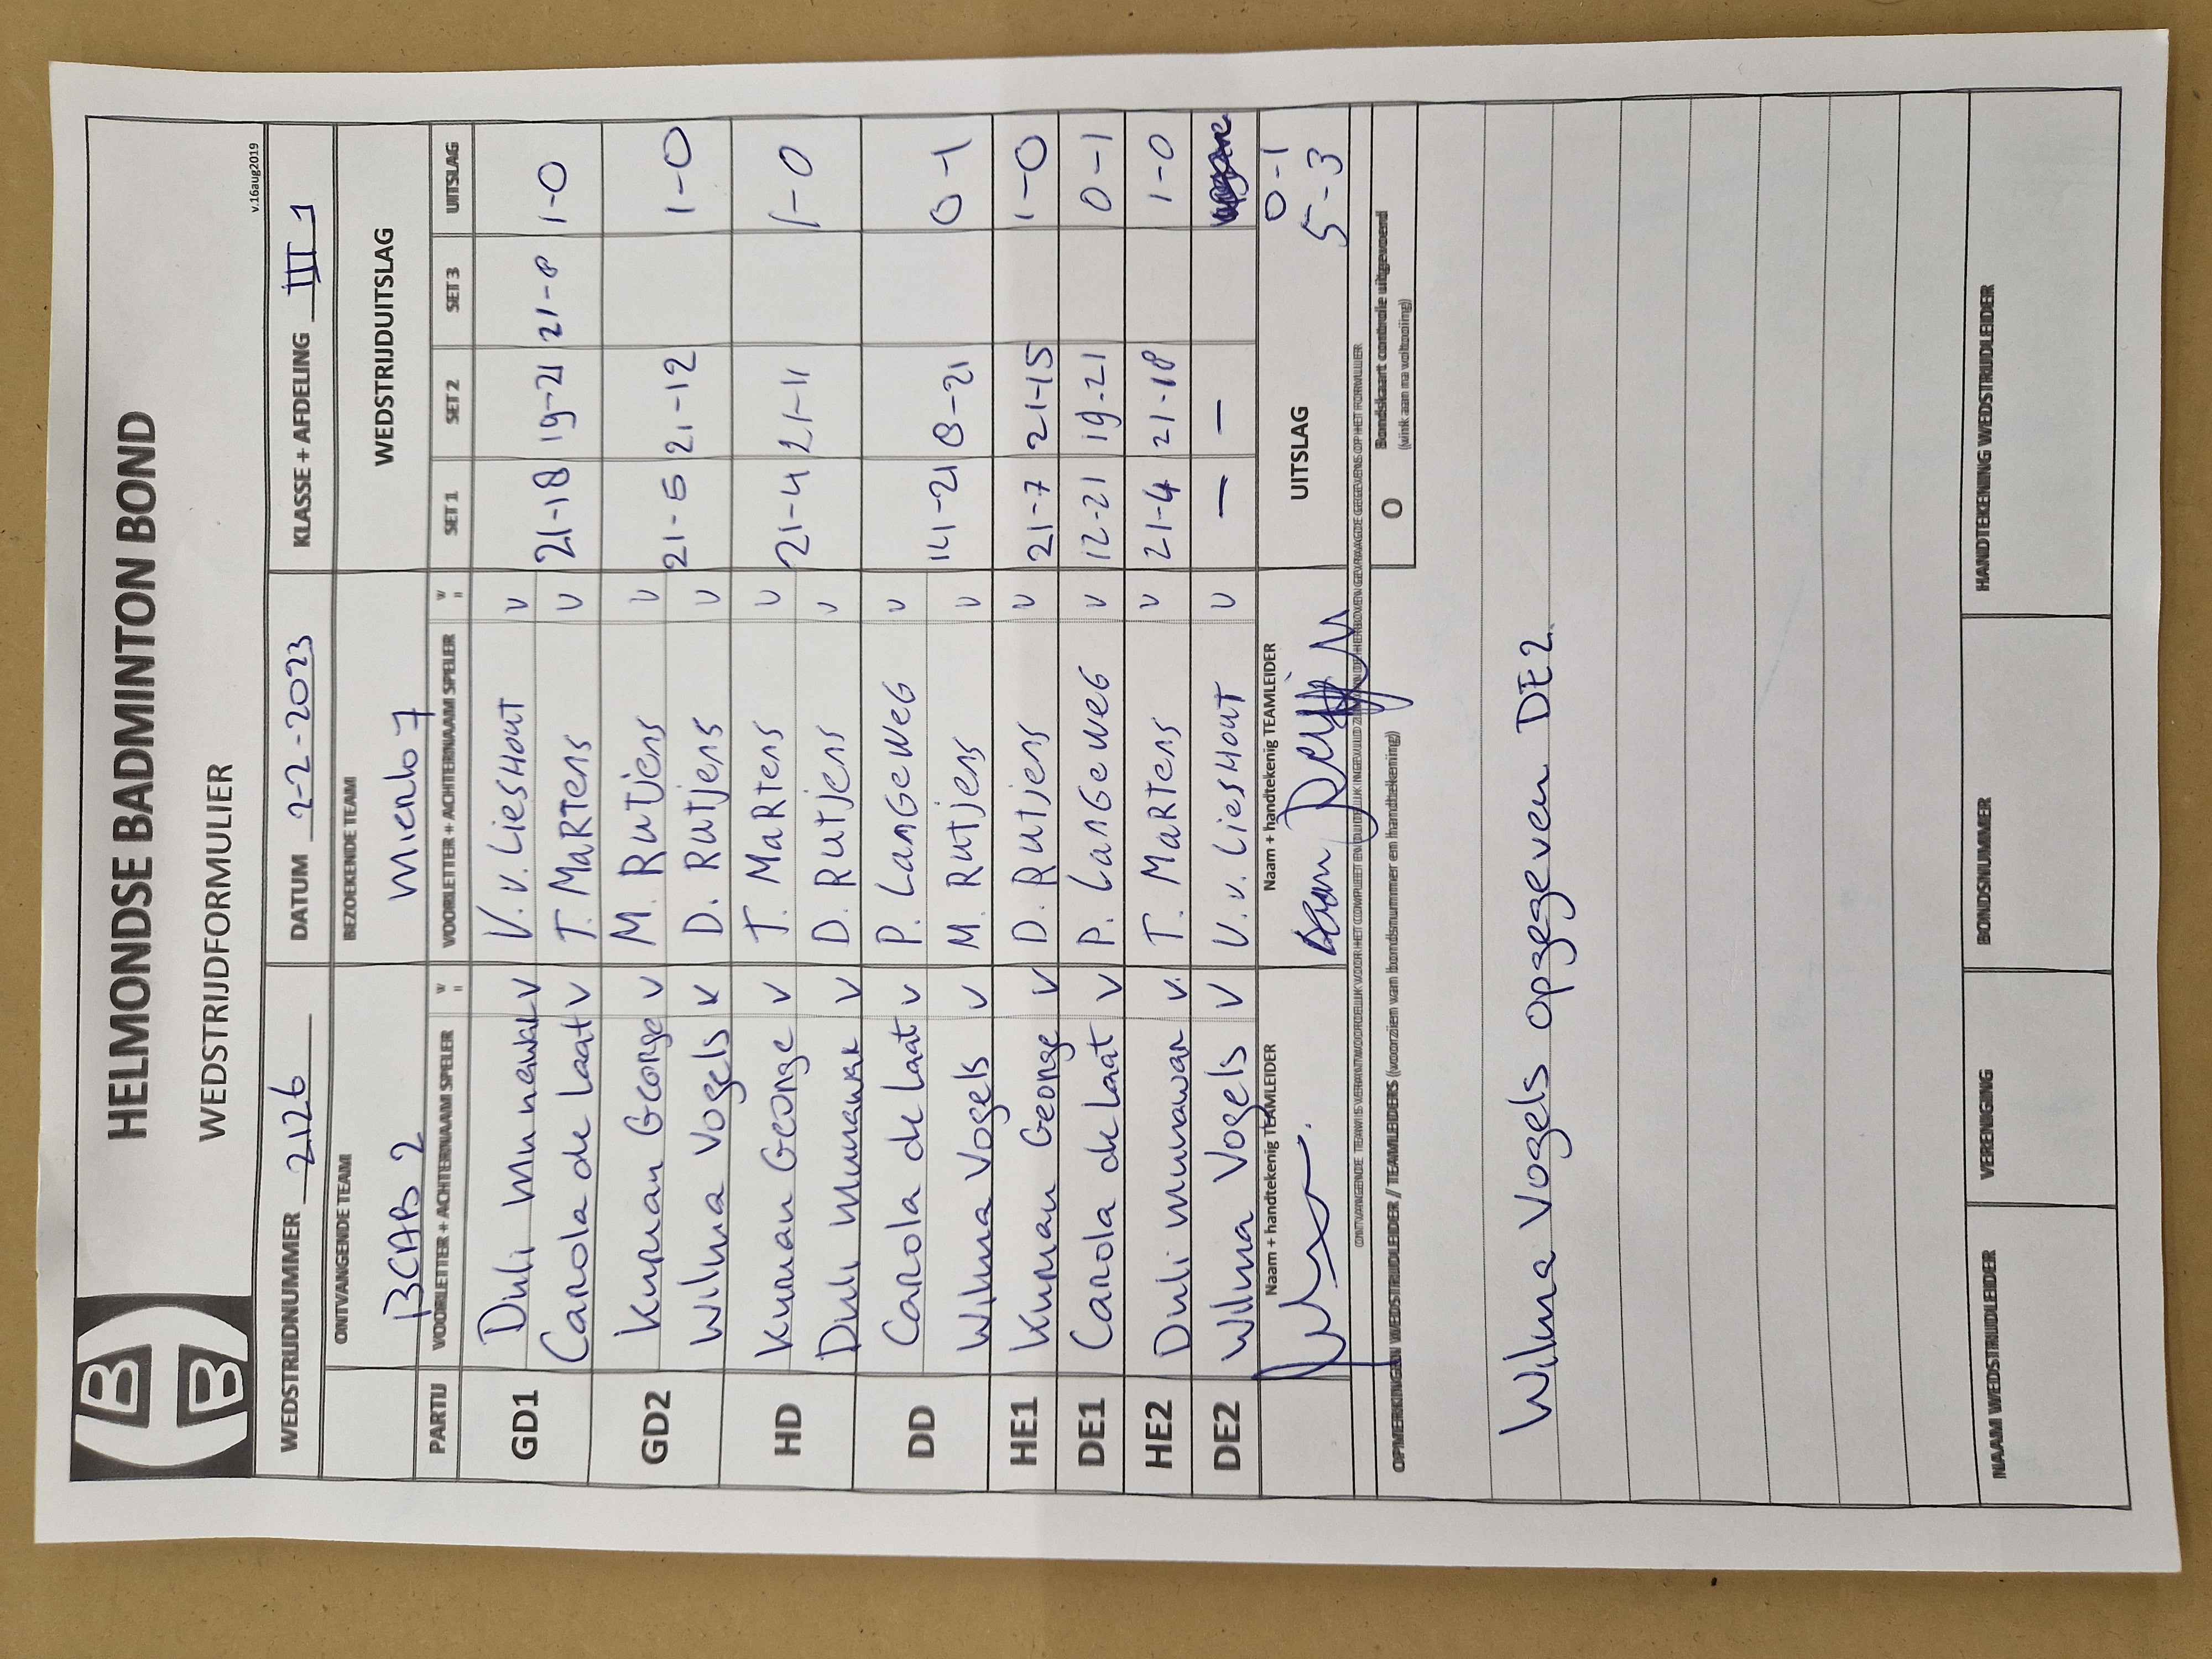 HELMONDSE BADMINTON BOND
WEDSTRIJDFORMULIER
v.16aug2019
WEDSTRIJDNUMMER 2126 DATUM 2-2-2023 KLASSE + AFDELING III 1
ONTVANGENDE TEAM BEZOEKENDE TEAM WEDSTRIJDUITSLAG
BCAB 2 Mierlo 7
PARTIJ VOORLETTER + ACHTERNAAM SPELER W VOORLETTER + ACHTERNAAM SPELER W SET 1 SET 2 SET 3 UITSLAG
GD1 Duli Munawar V V. v. LiesHout V
Carola de Laat V T. MaRTens V 21-18 19-21 21-8 1-0
GD2 Kurnan George V M. Rutjens V
Wilma Vogels V D. Rutjens V 21-5 21-12 1-0
HD Kurnan George V T. MaRTens V
Duli Munawar V D. Rutjens V 21-4 21-11 1-0
DD Carola de Laat V P. LanGeweG V
Wilma Vogels V M. Rutjens V 14-21 8-21 0-1
HE1 Kurnan George V D. Rutjens V 21-7 21-15 1-0
DE1 Carola de Laat V P. LanGeweG V 12-21 19-21 0-1
HE2 Duli Munawar V T. MaRTens V 21-4 21-18 1-0
DE2 Wilma Vogels V V. v. LiesHout V - -
0-1
Naam + handtekenig TEAMLEIDER Naam + handtekenig TEAMLEIDER UITSLAG 5-3
ONTVANGENDE TEAM IS VERANTWOORDELIJK VOOR HET COMPLEET EN DUIDELIJK INGEVULD ZIJN VAN DE HIERBOVEN GEVRAAGDE GEGEVENS OP HET FORMULIER
OPMERKINGEN WEDSTRIJDLEIDER / TEAMLEIDERS (voorzien van bondsnummer en handtekening)
O Bondskaart controle uitgevoerd
(vink aan na voltooiing)
Wilma Vogels opgegeven DE2
NAAM WEDSTRIJDLEIDER VERENIGING BONDSNUMMER HANDTEKENING WEDSTRIJDLEIDER